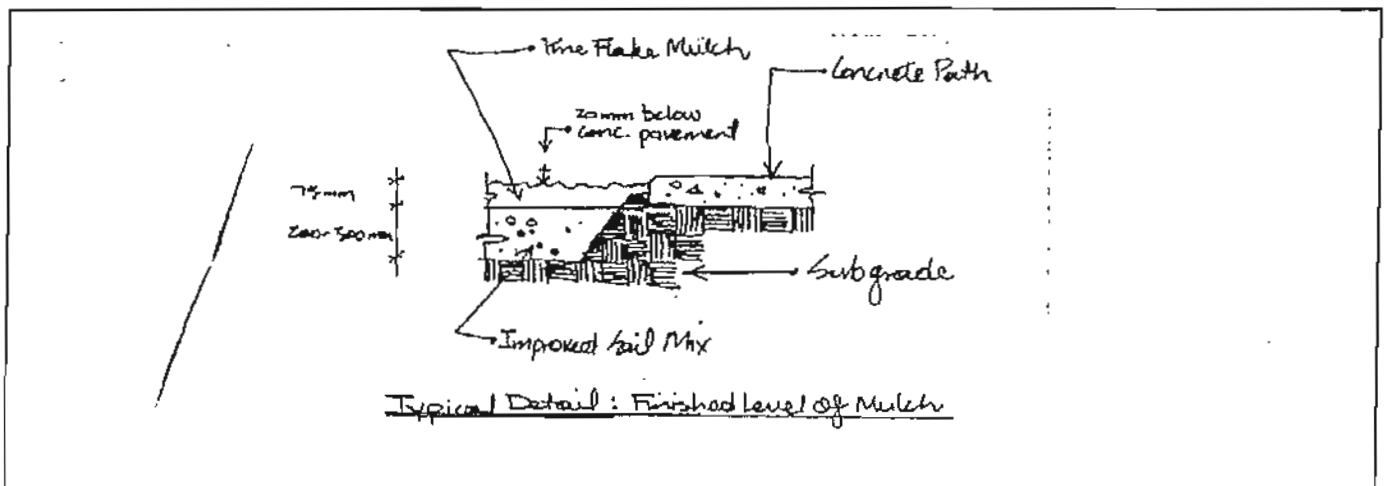 Pine Flake Mulch
Concrete Path
20mm below
conc. pavement
75mm
200-300mm
Subgrade
Improved Soil Mix
Typical Detail : Finished Level Of Mulch